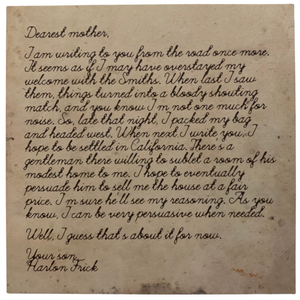 Dearest mother,
I am writing to you from the road once more.
It seems as if I may have overstayed my
welcome with the Smiths. When last I saw
them, things turned into a bloody shouting
match, and you know I'm not one much for
noise. So, late that night, I packed my bag
and headed west. When next I write you, I
hope to be settled in California. There's a
gentleman there willing to sublet a room of his
modest home to me. I hope to eventually
persuade him to sell me the house at a fair
price. I'm sure he'll see my reasoning. As you
know, I can be very persuasive when needed.
Well, I guess that's about it for now.
Your son,
Harlon Frick